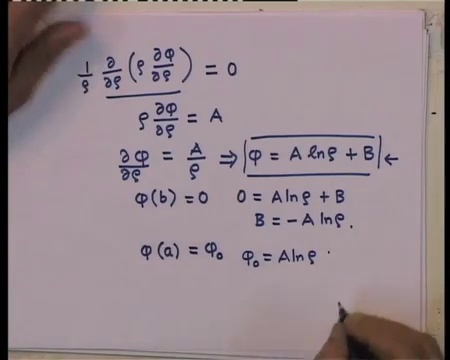 1/ρ ∂/∂ρ (ρ ∂φ/∂ρ) = 0
ρ ∂φ/∂ρ = A
∂φ/∂ρ = A/ρ ⇒ φ = A ln ρ + B ←
φ(b) = 0 0 = A ln ρ + B
B = - A ln ρ .
φ(a) = φ₀ φ₀ = A ln ρ